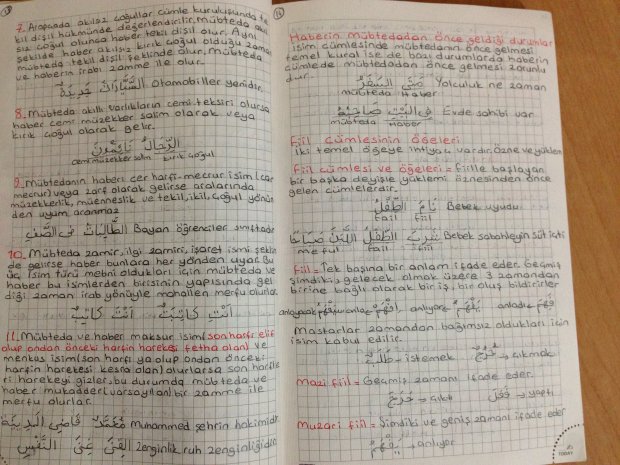 7. Arapçada akılsız çoğullar cümle kuruluşunda te
kil dişil hükmünde değerlendirilir. Mübteda akıl
sız çoğul olunca haber tekil dişil olur. Aynı
şekilde haber akılsız kırık çoğul olduğu zaman
mübteda tekil dişil şeklinde olur. Mübteda
ve haberin irabı zamme ile olur.
السَّيَّارَاتُ جَدِيدَةٌ Otomobiller yenidir.
8. Mübteda akıllı varlıkların cemi teksiri olursa
haber cemi müzekker salim olarak veya
kırık çoğul olarak gelir.
الرِّجَالُ
cemi müzekker salim kırık çoğul
9. Mübtedanın haberi cer harfi-mecrur isim (car
mecrur) veya zarf olarak gelirse aralarında
müzekkerlik, müenneslik ve tekil, ikil, çoğul yönün
den uyum aranmaz
الطَّالِبَاتُ فِي الصَّفِّ Bayan öğrenciler sınıftadır
10. Mübteda zamir, ilgi zamiri, işaret ismi şeklin
de gelirse haber bunlara her yönden uyar. Bu
üç isim türü mebni oldukları için mübteda ve
haber bu isimlerden birisinin yapısında gel
diği zaman irab yönüyle mahallen merfu olurlar.
أَنْتِ كَاتِبَةٌ أَنْتَ كَاتِبٌ
11. Mübteda ve haber maksur isim (son harfi elif
olup ondan önceki harfin harekesi fetha olan) ve
menkus isim (son harfi ya olup ondan önceki
harfin harekesi kesra olan) olurlarsa son harfle
ri harekeyi gizler, bu durumda mübteda ve
haber mukadder (varsayılan) bir zamme ile
merfu olurlar.
مُحَمَّدٌ قَاضِي الْمَدِينَةِ Muhammed şehrin hakimidir
الْغِنَى غِنَى النَّفْسِ Zenginlik ruh zenginliğidir
Haberin mübtedadan önce geldiği durumlar
İsim cümlesinde mübtedanın önce gelmesi
temel kural ise de bazı durumlarda haberin
cümlede mübtedadan önce gelmesi zorunlu
dur.
مَتَى السَّفَرُ Yolculuk ne zaman
mübteda Haber
فِي الْبَيْتِ صَاحِبُهُ Evde sahibi var
mübteda Haber
Fiil Cümlesinin Öğeleri
İki temel öğeye ihtiyaç vardır. Özne ve yüklem
Fiil cümlesi ve öğeleri = Fiille başlayan
bir başka deyişle yüklemi öznesinden önce
gelen cümlelerdir.
نَامَ الطِّفْلُ Bebek uyudu
fail fiil
شَرِبَ الطِّفْلُ اللَّبَنَ صَبَاحًا Bebek sabahleyin süt içti
meful fail fiil
Fiil = Tek başına bir anlam ifade eder. Geçmiş
şimdiki, gelecek olmak üzere 3 zamandan
birine bağlı olarak bir iş, bir oluş bildirirler
فَهِمَ anladı يَفْهَمُ anlıyor
Mastarlar zamandan bağımsız oldukları için
isim kabul edilir.
طَلَبٌ → istemek خُرُوجٌ → çıkmak
Mazi fiil = Geçmiş zamanı ifade eder.
خَرَجَ → çıktı فَعَلَ → yaptı
Muzari fiil = Şimdiki ve geniş zamanı ifade eder
يَفْهَمُ → anlıyor
TODAY